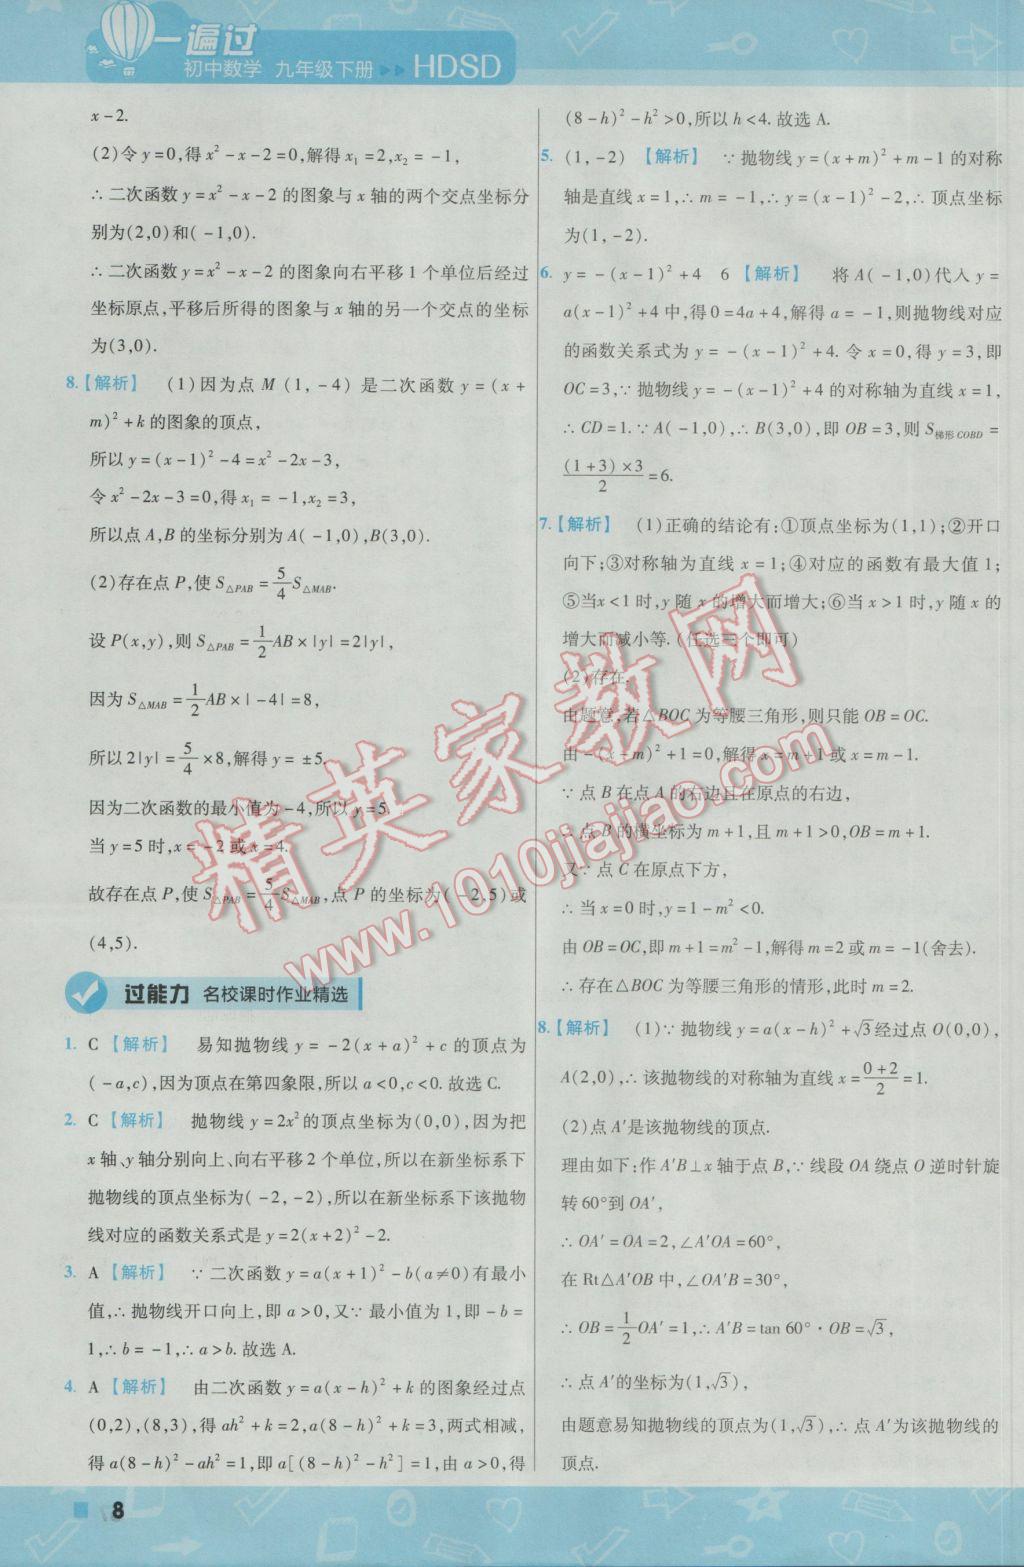 一遍过
初中数学 九年级下册 ▶▶ HDSD
x-2.
(2)令y=0,得x²-x-2=0,解得x₁=2,x₂=-1,
∴二次函数y=x²-x-2的图象与x轴的两个交点坐标分
别为(2,0)和(-1,0).
∴二次函数y=x²-x-2的图象向右平移1个单位后经过
坐标原点,平移后所得的图象与x轴的另一个交点的坐标
为(3,0).
8.【解析】 (1)因为点M(1,-4)是二次函数y=(x+
m)²+k的图象的顶点,
所以y=(x-1)²-4=x²-2x-3,
令x²-2x-3=0,得x₁=-1,x₂=3,
所以点A,B的坐标分别为A(-1,0),B(3,0).
(2)存在点P,使S△PAB=5/4 S△MAB.
设P(x,y),则S△PAB=1/2 AB×|y|=2|y|,
因为S△MAB=1/2 AB×|-4|=8,
所以2|y|=5/4×8,解得y=±5.
因为二次函数的最小值为-4,所以y=5.
当y=5时,x=-2或x=4.
故存在点P,使S△PAB=5/4 S△MAB,点P的坐标为(-2,5)或
(4,5).
过能力 名校课时作业精选
1. C【解析】 易知抛物线y=-2(x+a)²+c的顶点为
(-a,c),因为顶点在第四象限,所以a<0,c<0.故选C.
2. C【解析】 抛物线y=2x²的顶点坐标为(0,0),因为把
x轴、y轴分别向上、向右平移2个单位,所以在新坐标系下
抛物线的顶点坐标为(-2,-2),所以在新坐标系下该抛物
线对应的函数关系式是y=2(x+2)²-2.
3. A【解析】 ∵二次函数y=a(x+1)²-b(a≠0)有最小
值,∴抛物线开口向上,即a>0,又∵最小值为1,即-b=
1,∴b=-1,∴a>b.故选A.
4. A【解析】 由二次函数y=a(x-h)²+k的图象经过点
(0,2),(8,3),得ah²+k=2,a(8-h)²+k=3,两式相减,
得a(8-h)²-ah²=1,即a[(8-h)²-h²]=1,由a>0,得
(8-h)²-h²>0,所以h<4.故选A.
5. (1,-2)【解析】 ∵抛物线y=(x+m)²+m-1的对称
轴是直线x=1,∴m=-1,∴y=(x-1)²-2,∴顶点坐标
为(1,-2).
6. y=-(x-1)²+4 6【解析】 将A(-1,0)代入y=
a(x-1)²+4中,得0=4a+4,解得a=-1,则抛物线对应
的函数关系式为y=-(x-1)²+4.令x=0,得y=3,即
OC=3,∵抛物线y=-(x-1)²+4的对称轴为直线x=1,
∴CD=1.∵A(-1,0),∴B(3,0),即OB=3,则S梯形COBD=
(1+3)×3/2=6.
7.【解析】 (1)正确的结论有:①顶点坐标为(1,1);②开口
向下;③对称轴为直线x=1;④对应的函数有最大值1;
⑤当x<1时,y随x的增大而增大;⑥当x>1时,y随x的
增大而减小等.(任选三个即可)
(2)存在.
由题意,若△BOC为等腰三角形,则只能OB=OC.
由-(x-m)²+1=0,解得x=m+1或x=m-1.
∵点B在点A的右边且在原点的右边,
∴点B的横坐标为m+1,且m+1>0,OB=m+1.
又∵点C在原点下方,
∴当x=0时,y=1-m²<0.
由OB=OC,即m+1=m²-1,解得m=2或m=-1(舍去).
∴存在△BOC为等腰三角形的情形,此时m=2.
8.【解析】 (1)∵抛物线y=a(x-h)²+√3经过点O(0,0),
A(2,0),∴该抛物线的对称轴为直线x=(0+2)/2=1.
(2)点A′是该抛物线的顶点.
理由如下:作A′B⊥x轴于点B,∵线段OA绕点O逆时针旋
转60°到OA′,
∴OA′=OA=2,∠A′OA=60°,
在Rt△A′OB中,∠OA′B=30°,
∴OB=1/2 OA′=1,∴A′B=tan 60°·OB=√3,
∴点A′的坐标为(1,√3),
由题意易知抛物线的顶点为(1,√3),∴点A′为该抛物线的
顶点.
8
精英家教网
www.1010jiajiao.com